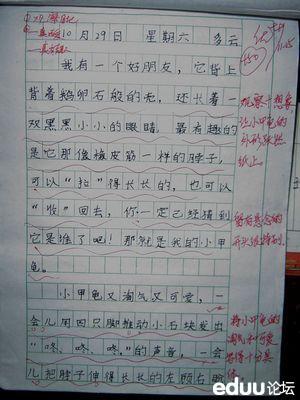 10月29日 星期六 多云
我有一个好朋友，它背上
背着鹅卵石般的壳，还长着一
双黑黑小小的眼睛，最有趣的
是它那像橡皮筋一样的脖子，
可以“拉”得长长的，也可以
“收”回去，你一定已经猜到
它是谁了吧！那就是我的小甲
龟。
小甲龟又淘气又可爱，一
会儿用四只脚推动小石块发出
“咚、咚、咚。”的声音，一会
儿把脖子伸得长长的左顾右盼
观察+想象
让小甲龟的
外形跃然
纸上
留有悬念的
开头很特别
将小甲龟的
淘气和可爱
写得十分具
体
eduu论坛